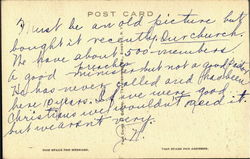 POST CARD
must be an old picture but
bought it recently. Our church.
We have about 500 members
preacher
a good minister but not a good
He has never called and has been
here 10 years. If we were good
Christians we wouldn't need it
but we aren't very.
THIS SPACE FOR MESSAGE. THIS SPACE FOR ADDRESS.